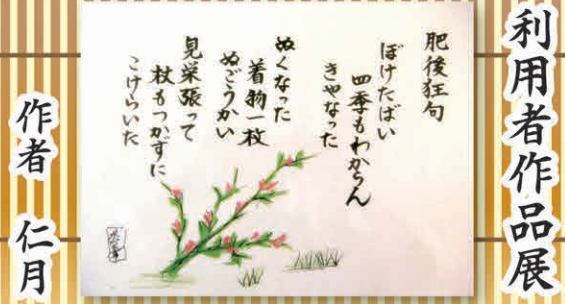 利用者作品展
肥後狂句
ぼけたばい
四季もわからん
きやなった
ぬくなった
着物一枚
ぬごうかい
見栄張って
杖もつかずに
こけらいた
作者 仁月